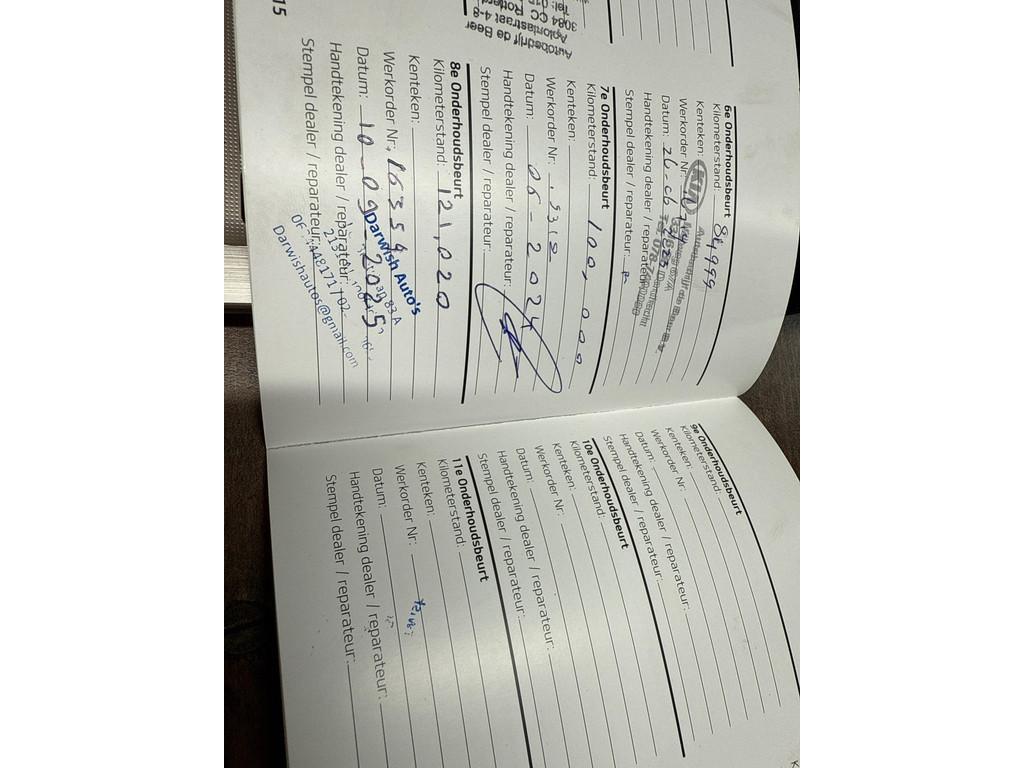 15
Autobedrijf de Beer
Aploniastraat 4-8
3084 CC
Tel:
6e Onderhoudsbeurt
Kilometerstand: 84999
Kenteken:
Werkorder Nr:
Datum: 26-06-2023
Handtekening dealer / reparateur:
Stempel dealer / reparateur:
KIA
Autobedrijf de Beer B.V.
7e Onderhoudsbeurt
Kilometerstand: 100,000
Kenteken:
Werkorder Nr:
Datum: 06-2024
Handtekening dealer / reparateur:
Stempel dealer / reparateur:
8e Onderhoudsbeurt
Kilometerstand: 121,020
Kenteken:
Werkorder Nr: 16354
Datum: 10-09-2025
Handtekening dealer / reparateur:
Stempel dealer / reparateur:
Darwish Auto's
83 A
Darwishautos@gmail.com
9e Onderhoudsbeurt
Kilometerstand:
Kenteken:
Werkorder Nr:
Datum:
Handtekening dealer / reparateur:
Stempel dealer / reparateur:
10e Onderhoudsbeurt
Kilometerstand:
Kenteken:
Werkorder Nr:
Datum:
Handtekening dealer / reparateur:
Stempel dealer / reparateur:
11e Onderhoudsbeurt
Kilometerstand:
Kenteken:
Werkorder Nr:
Datum:
Handtekening dealer / reparateur:
Stempel dealer / reparateur: